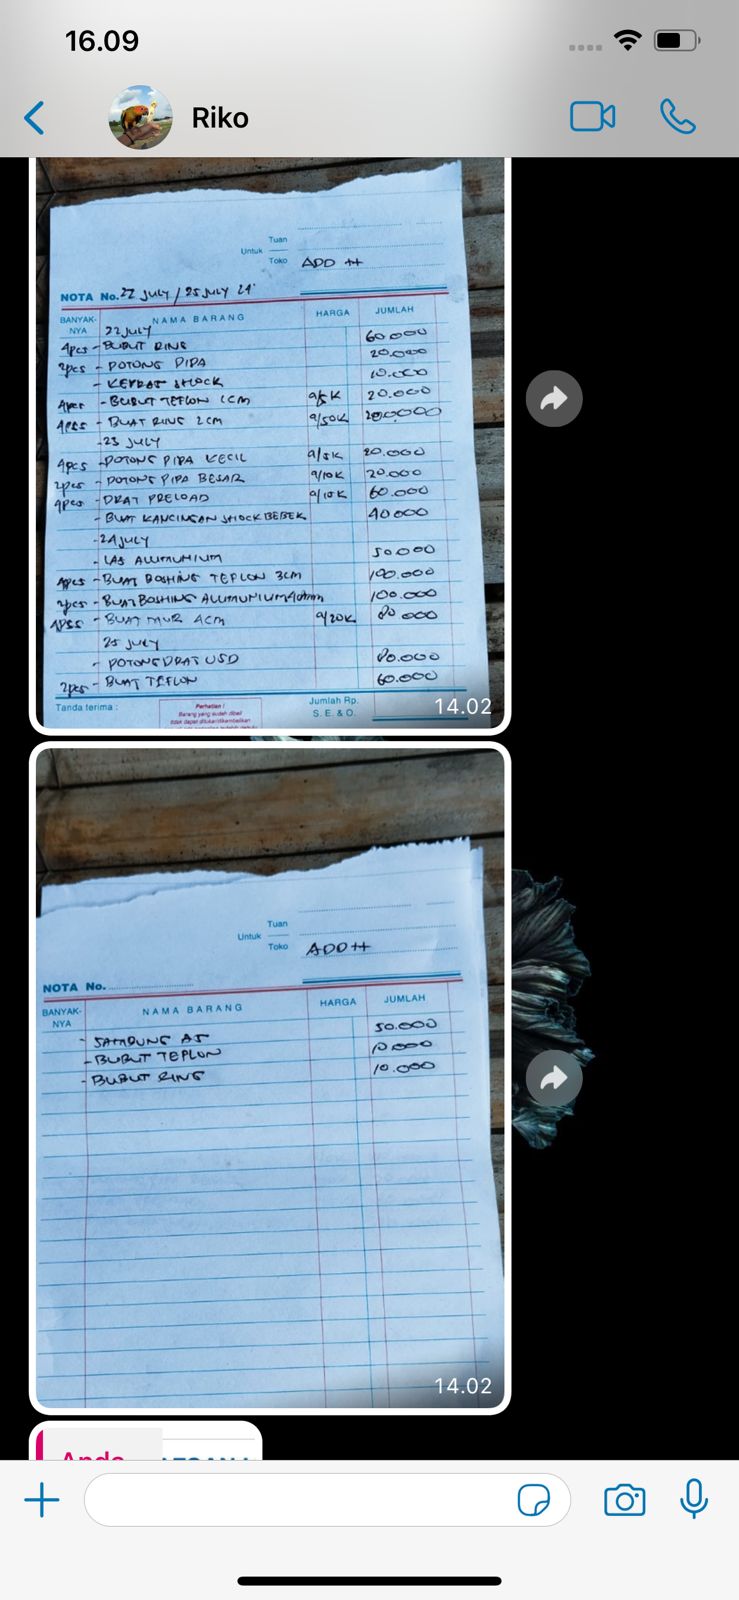 16.09
Riko
Tuan
Untuk
Toko ADD H
NOTA No. 22 JULY / 25 JULY 24'
BANYAK-NYA NAMA BARANG HARGA JUMLAH
22 JULY
4pcs - BUBUT RING 60.000
2pcs - POTONG PIPA 20.000
- SHOCK 10.000
- BUBUT TEFLON 1CM @/5K 20.000
4pcs - BUAT RING 2CM @/50K 200.000
- 23 JULY
4pcs - POTONG PIPA KECIL @/5K 20.000
2pcs - POTONG PIPA BESAR @/10K 20.000
4pcs - DRAT PRELOAD @/15K 60.000
- BUAT KANCINGAN SHOCK BEBEK 40.000
- 24 JULY
- LAS ALUMUNIUM 50.000
4pcs - BUAT BOSHING TEFLON 3CM
2pcs - BUAT BOSHING ALUMUNIUM 100.000
4pcs - BUAT MUR 4CM @/20K 80.000
25 JULY
- POTONG DRAT USD 80.000
2pcs - BUAT TEFLON 60.000
Tanda terima :
Perhatian !
Barang yang sudah dibeli
tidak dapat ditukar/dikembalikan
Jumlah Rp.
S. E. & O.
14.02
Tuan
Untuk
Toko ADD H
NOTA No.
BANYAK-NYA NAMA BARANG HARGA JUMLAH
- SAMBUNG AS 50.000
- BUBUT TEPLON 10.000
- BUBUT RING 10.000
14.02
Anda